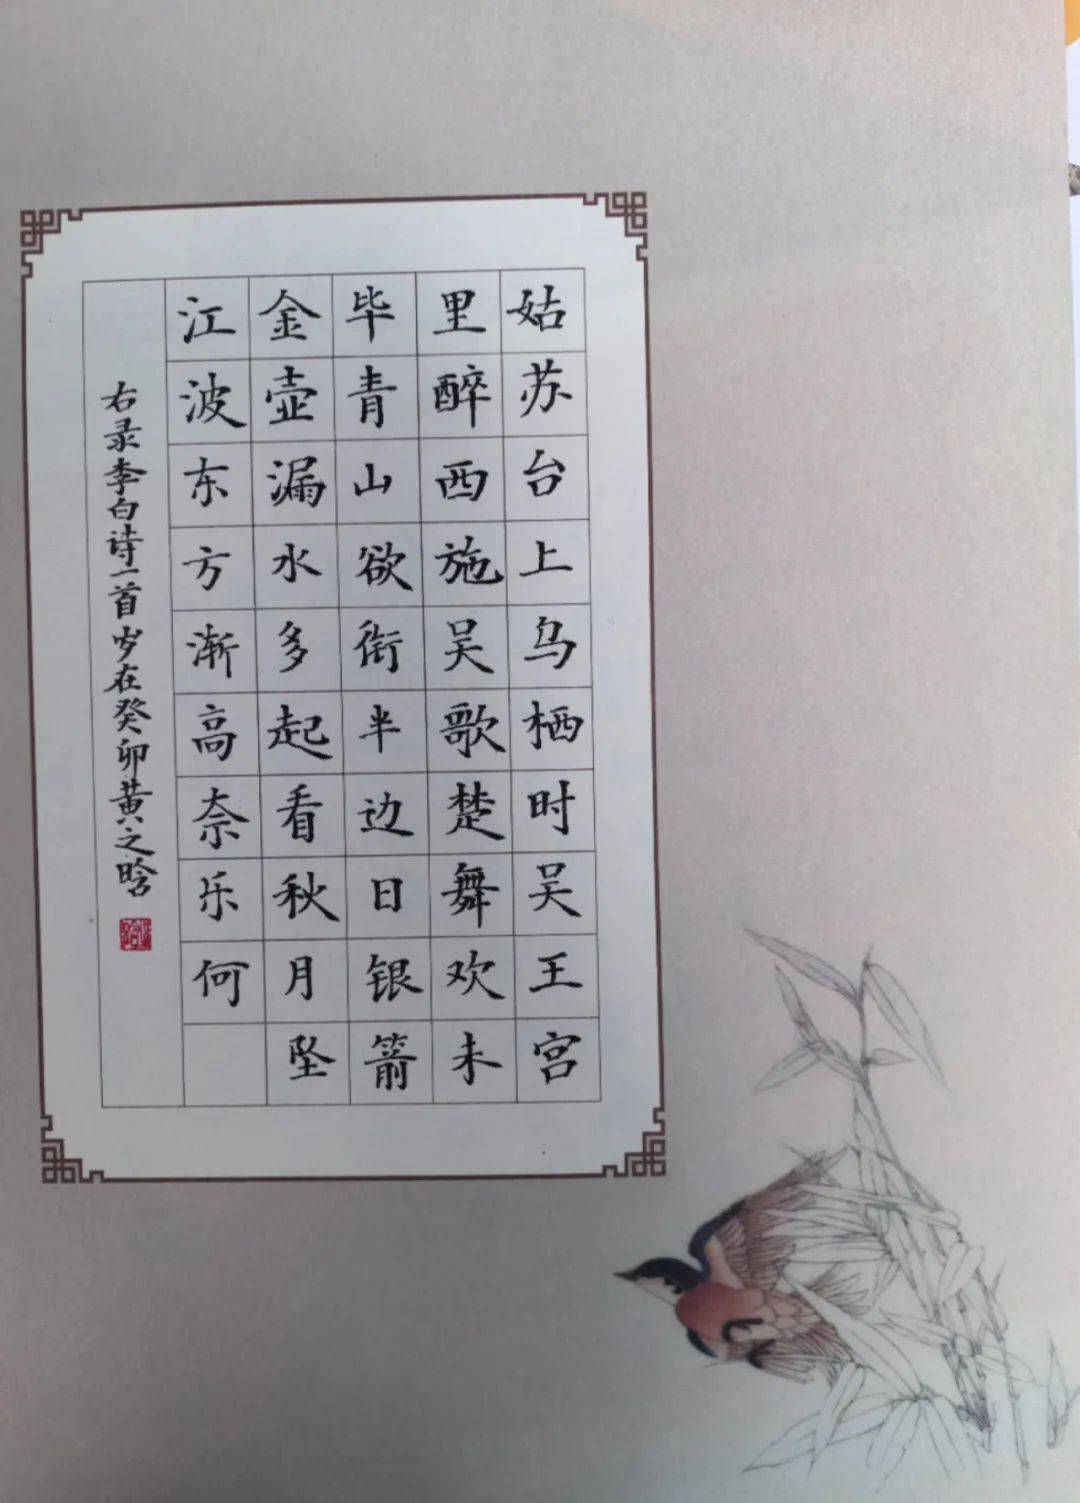 姑苏台上乌栖时吴王宫
里醉西施吴歌楚舞欢未
毕青山欲衔半边日银箭
金壶漏水多起看秋月坠
江波东方渐高奈乐何
右录李白诗一首岁在癸卯黄之晗